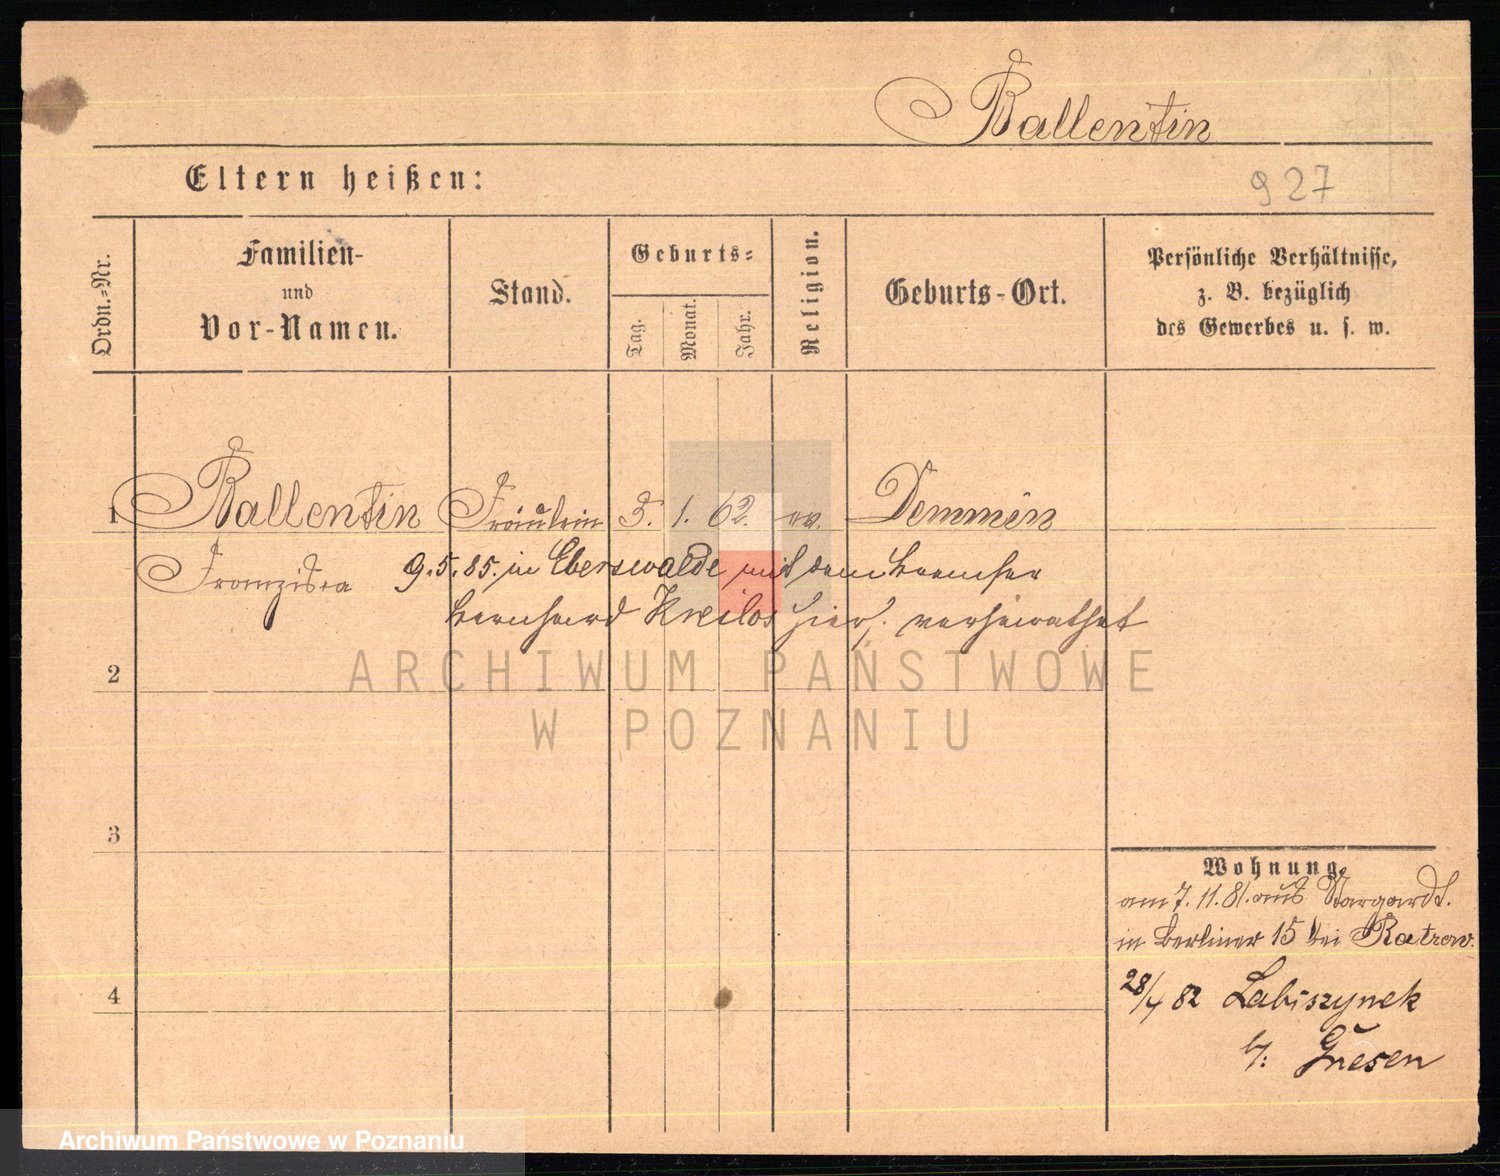 Ballentin
Eltern heißen:
927
Ordn.-Nr.
Familien-
und
Vor-Namen.
Stand.
Geburts-
Tag.
Monat.
Jahr.
Religion.
Geburts-Ort.
Persönliche Verhältnisse,
z. B. bezüglich
des Gewerbes u. s. w.
1 Ballentin Fräulein 3. 1. 62. ev. Demmin
Franziska 9.5.85. in Eberswalde mit dem Bremser
Bernhard Kreilos hier verheirathet
2
ARCHIWUM PAŃSTWOWE
W POZNANIU
3
Wohnung
am 7.11.81. aus Stargard
in Berliner 15 bei Ratzow
28/4 82 Labiszynek
b/: Gnesen
4
Archiwum Państwowe w Poznaniu